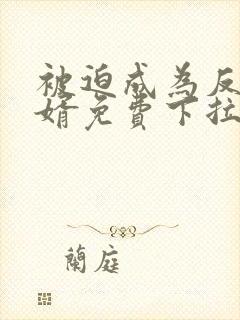 被迫成為反
婿免費下拉
蘭庭